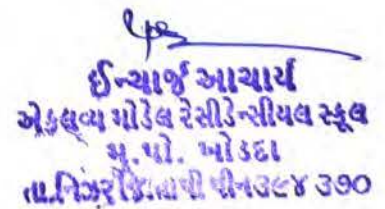 ઈન્ચાર્જ આચાર્ય
એકલવ્ય મોડેલ રેસીડેન્સીયલ સ્કૂલ
મુ.પો. ખોડદા
તા.નિઝર જિ.તાપી પીન૩૯૪ ૩૭૦